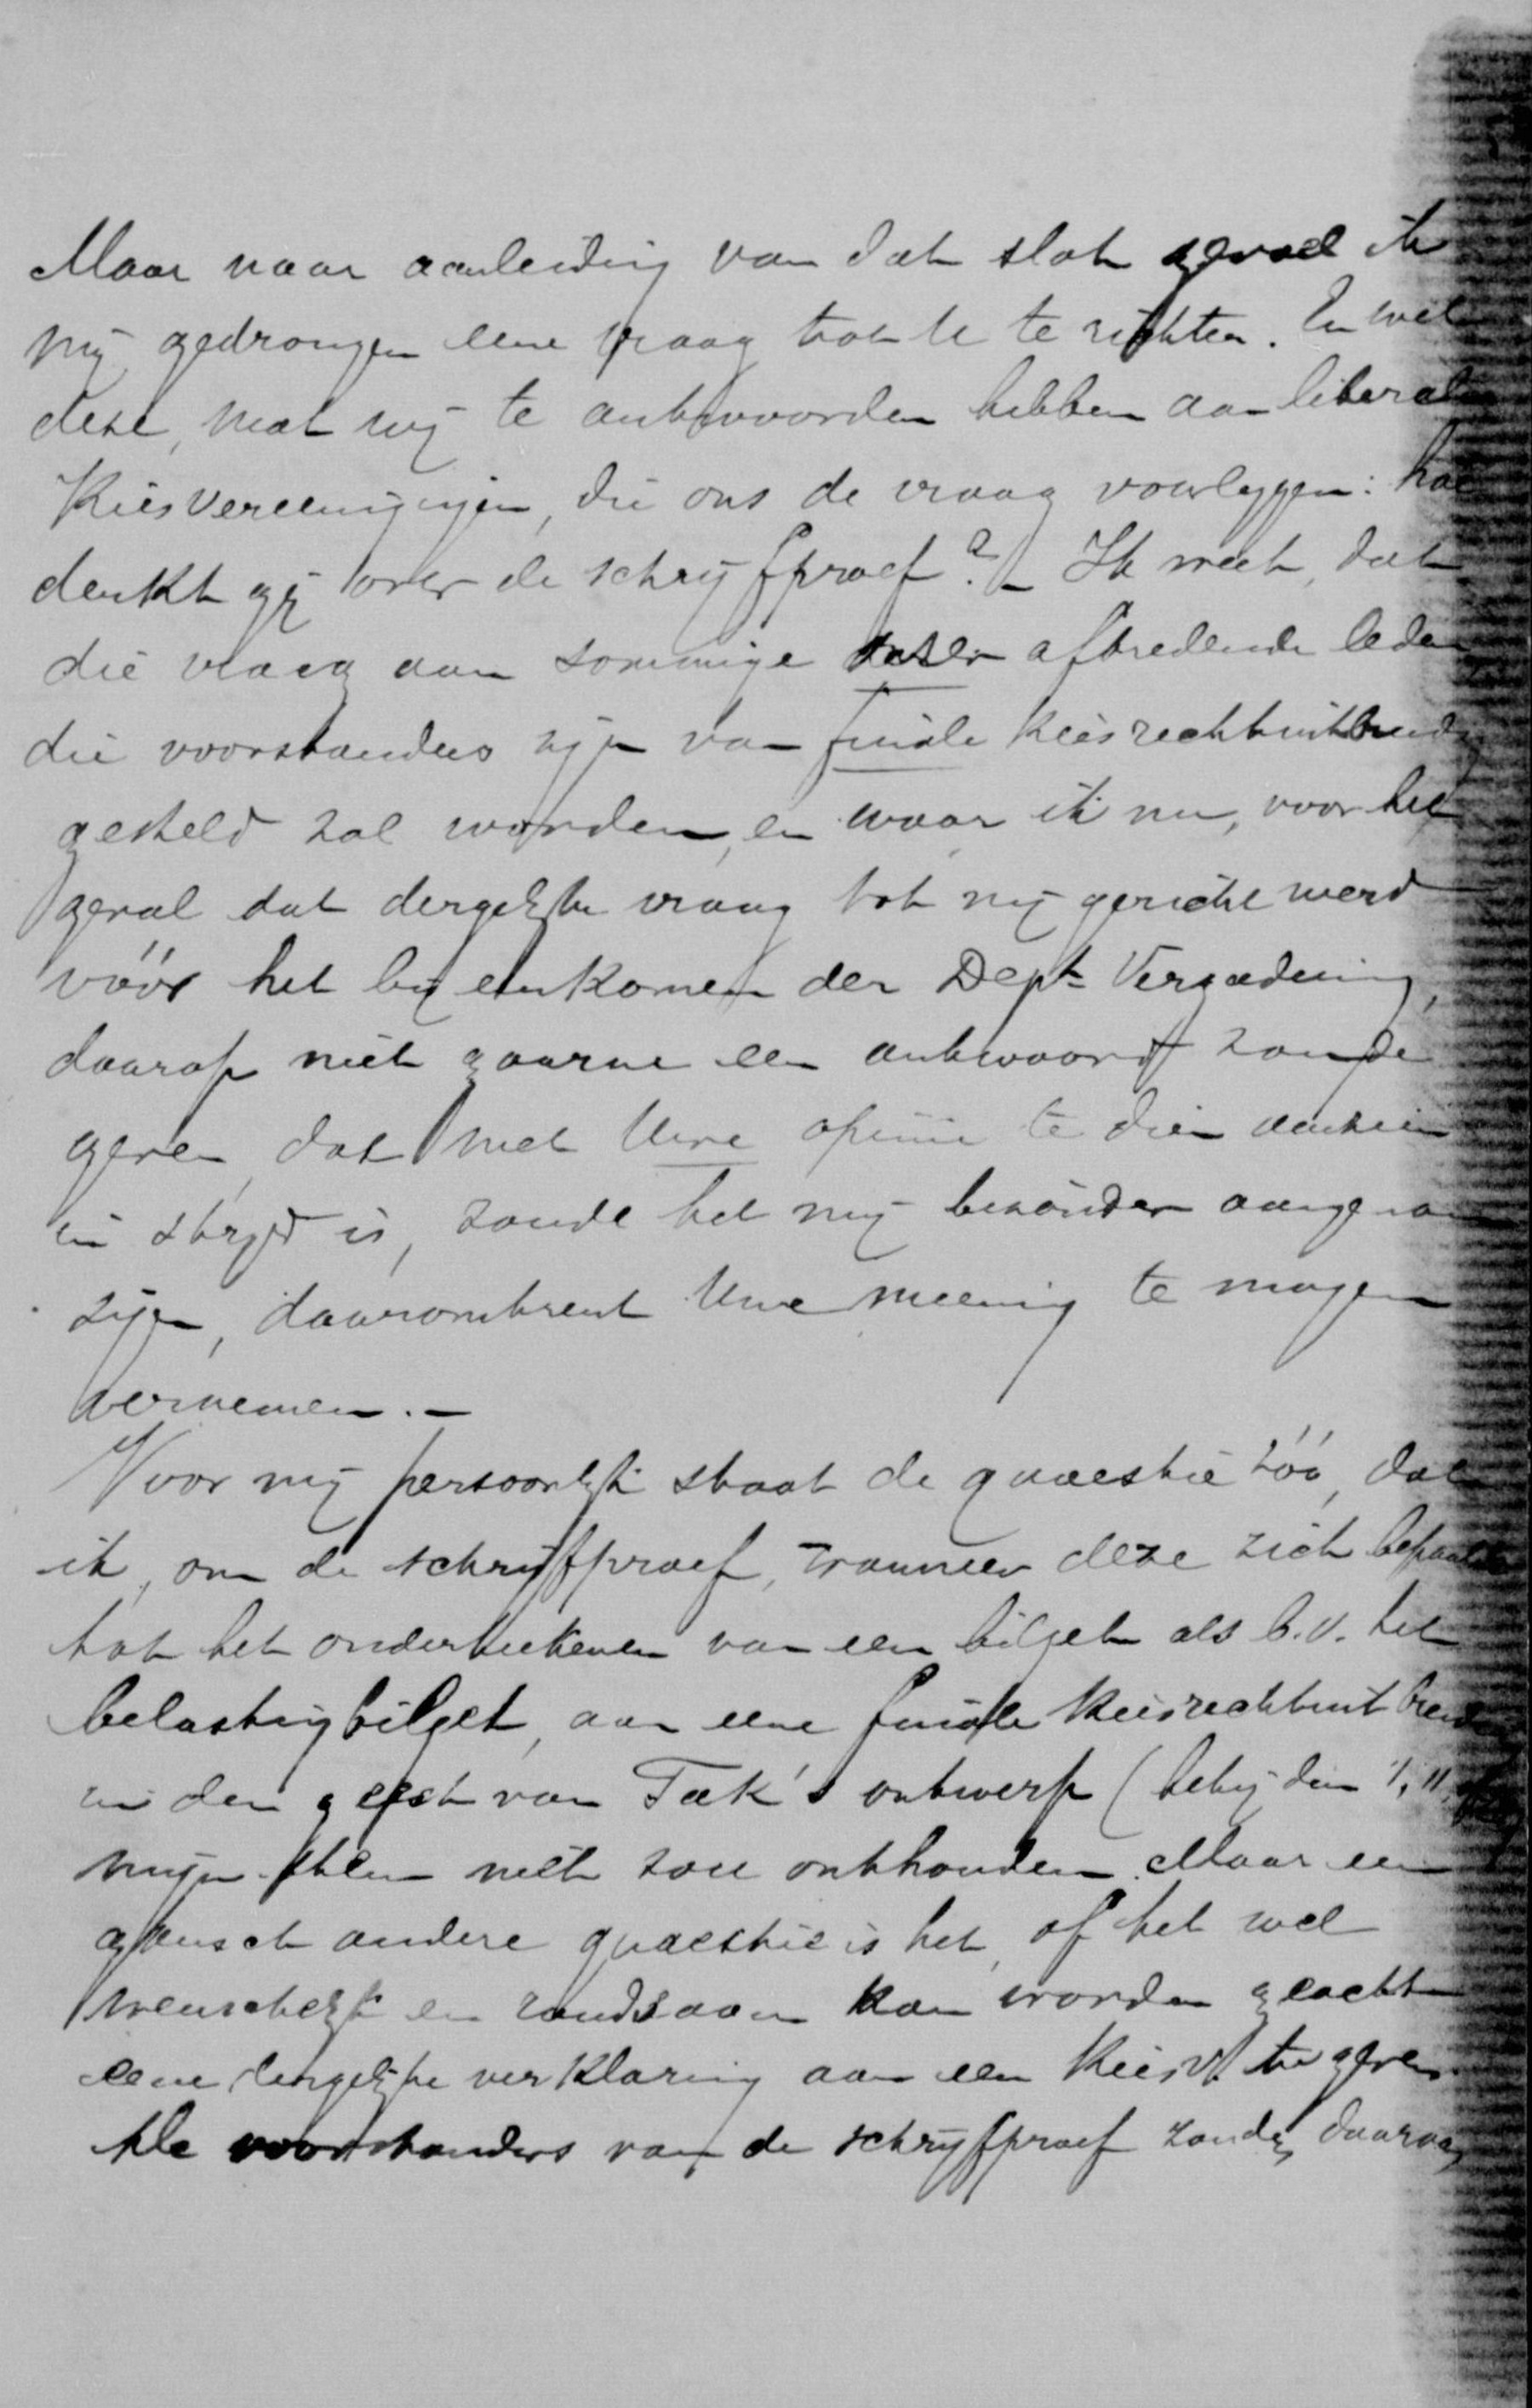 Maar naar aanleiding van dat slot gevoel ik
mij gedrongen eene vraag tot U te richten. En wel
deze, wat wij te antwoorden hebben aan liberale
Kiesvereenigingen, die ons de vraag voorleggen: hoe
denkt gij over de schrijfproef? – Ik weet, dat
die vraag aan sommige onzer aftredende leden
die voorstanders zijn van finale kiesrechtuitbreiding
gesteld zal worden, en waar ik nu, voor het
geval dat dergelijke vraag tot mij gericht werd
vóór het bijeenkomen der Dept Vergadering,
daarop niet gaarne een antwoord zoude
geven, dat met Uwe opinie te dien aanzien
in strijd is, zoude het mij bizonder aangenaam
zijn, daaromtrent Uwe meening te mogen
vernemen. –
Voor mij persoonlijk staat de quaestie zóó, dat
ik, om de schrijfproef, wanneer deze zich bepaalde
tot het onderteekenen van een biljet als b.v. het
belastingbiljet, aan eene finale kiesrechtuitbreiding
in den geest van Tak's ontwerp (
mijn stem niet zou onthouden. Maar een
gansch andere quaestie is het, of het wel
wenschelijk en raadzaam kan worden geacht
eene dergelijke verklaring aan een Kiesv. te geven.
De voorstanders van de schrijfproef zouden daarvan